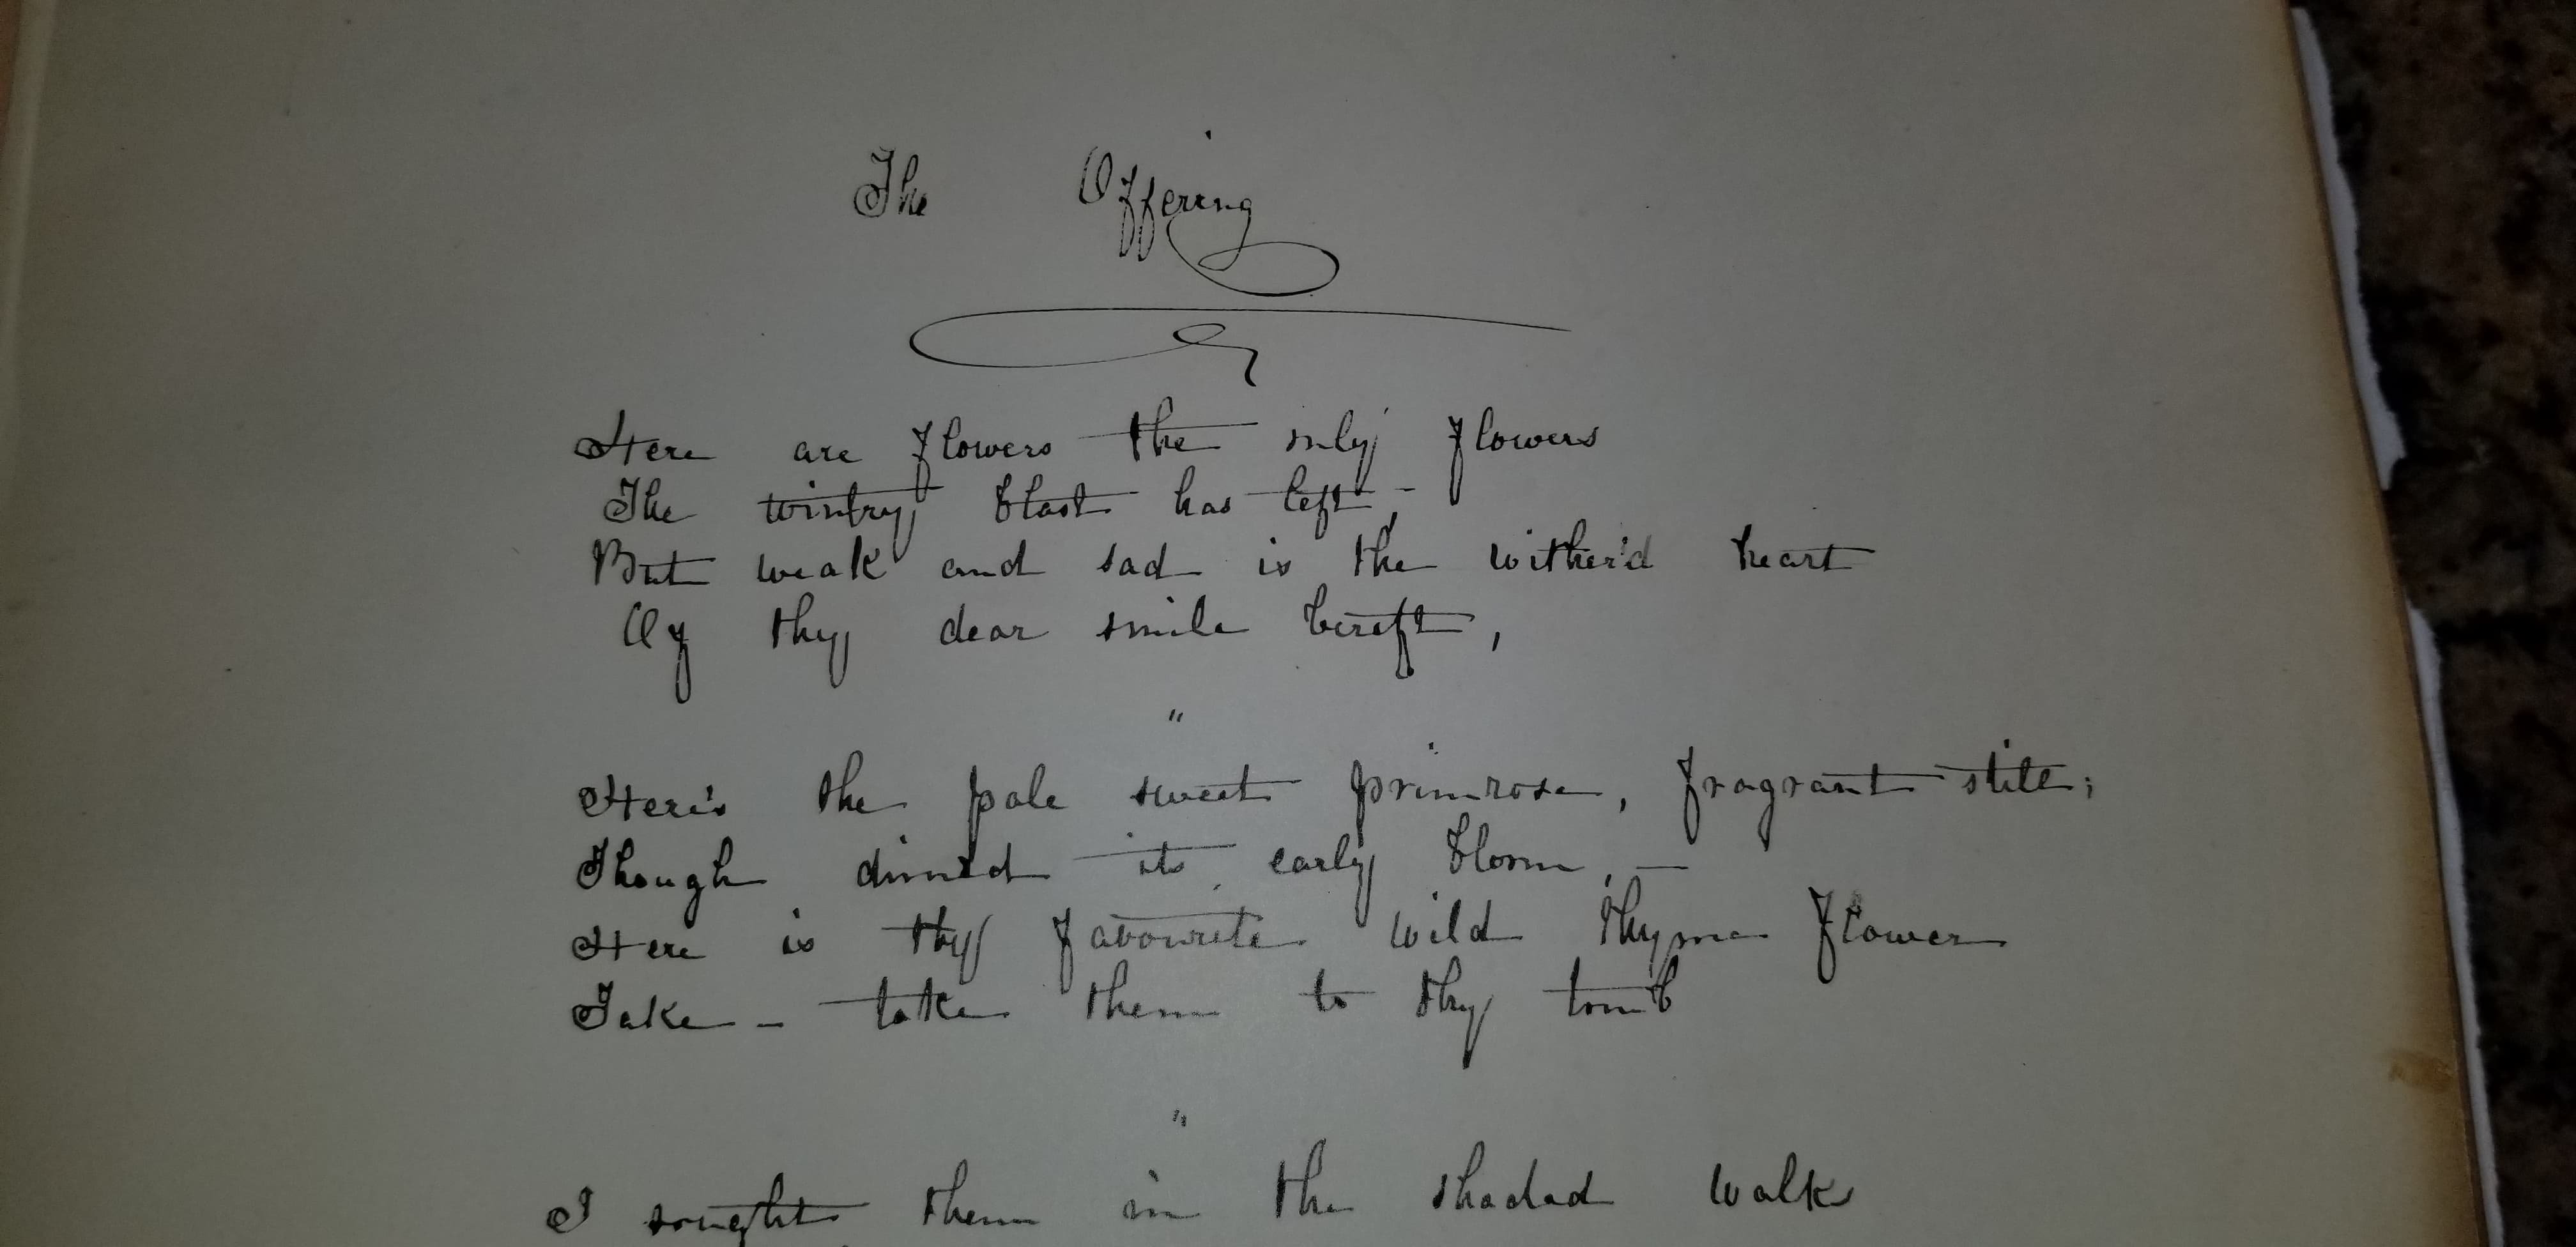 The Offering
Here are flowers the only flowers
The wintry blast has left, -
But weak and sad is the wither'd heart
Of thy dear smile bereft,
"
Here's the pale sweet primrose, fragrant still;
Though dim'd its early bloom, —
Here is thy favourite wild thyme flower
Take - take them to thy tomb
"
I sought them in the shaded walk